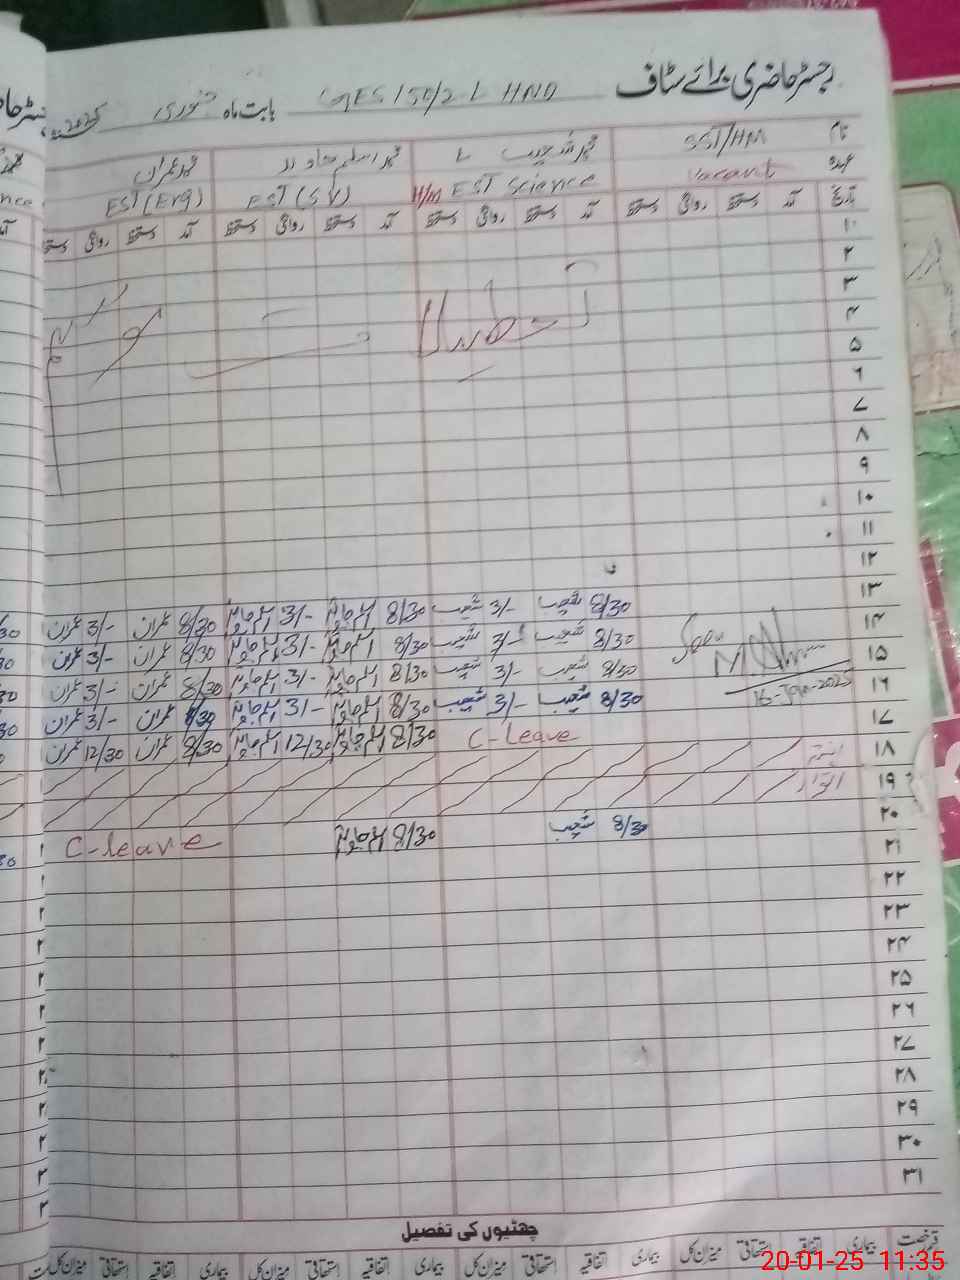 رجسٹر حاضری برائے سٹاف GES 150/2 L HND بابت ماہ جنوری 2025
نام SST/HM محمد شعیب محمد اسلم جاوید محمد عمران
عہدہ Vacant H/M EST Science EST (SV) EST (Eng)
تاریخ آمد دستخط روانگی دستخط آمد دستخط روانگی دستخط آمد دستخط روانگی دستخط آمد دستخط روانگی دستخط
۱
۲
۳
۴ تعطیلات
۵
۶
۷
۸
۹
۱۰
۱۱
۱۲
۱۳ 8/30 شعیب 3/- شعیب 8/30 اسلم جاوید 3/- اسلم جاوید 8/30 عمران 3/- عمران
۱۴ 8/30 شعیب 3/- شعیب 8/30 اسلم جاوید 3/- اسلم جاوید 8/30 عمران 3/- عمران
۱۵ 8/30 شعیب 3/- شعیب 8/30 اسلم جاوید 3/- اسلم جاوید 8/30 عمران 3/- عمران
۱۶ 16-Jan-2025 8/30 شعیب 3/- شعیب 8/30 اسلم جاوید 3/- اسلم جاوید 8/30 عمران 3/- عمران
۱۷ C-leave 8/30 اسلم جاوید 12/30 اسلم جاوید 8/30 عمران 12/30 عمران
۱۸
۱۹ اتوار
۲۰ 8/30 شعیب 8/30 اسلم جاوید C-leave
۲۱
۲۲
۲۳
۲۴
۲۵
۲۶
۲۷
۲۸
۲۹
۳۰
۳۱
چھٹیوں کی تفصیل
قسم رخصت بیماری اتفاقیہ استحقاقی میزان کل بیماری اتفاقیہ استحقاقی میزان کل بیماری اتفاقیہ استحقاقی میزان کل بیماری اتفاقیہ استحقاقی میزان کل
20-01-25 11:35